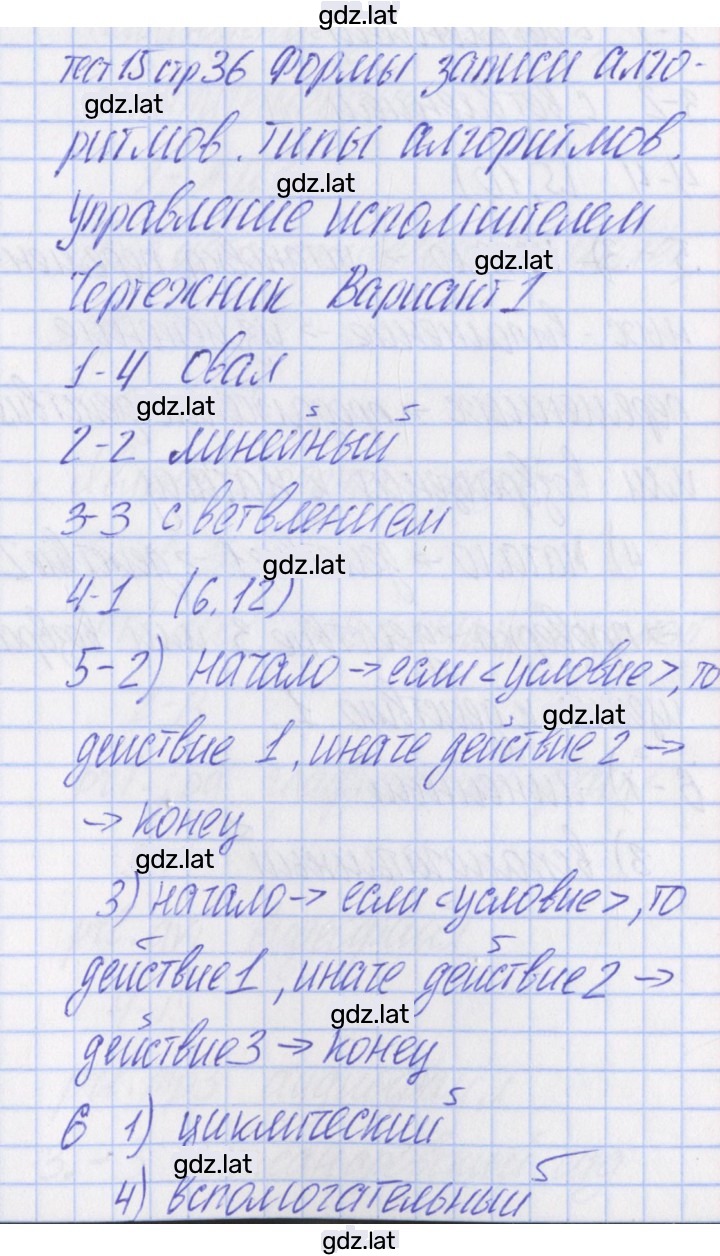 gdz.lat
тест 15 стр 36 Формы записи алго-
gdz.lat
ритмов. Типы алгоритмов.
gdz.lat
Управление исполнителем
gdz.lat
Чертежник Вариант 1
1-4 овал
gdz.lat
2-2 линейный
3-3 с ветвлением
gdz.lat
4-1 (6,12)
5-2) начало → если <условие>, то
gdz.lat
действие 1, иначе действие 2 →
→ конец
gdz.lat
3) начало → если <условие>, то
действие 1, иначе действие 2 →
gdz.lat
действие 3 → конец
6 1) циклический
gdz.lat
4) вспомогательный
gdz.lat